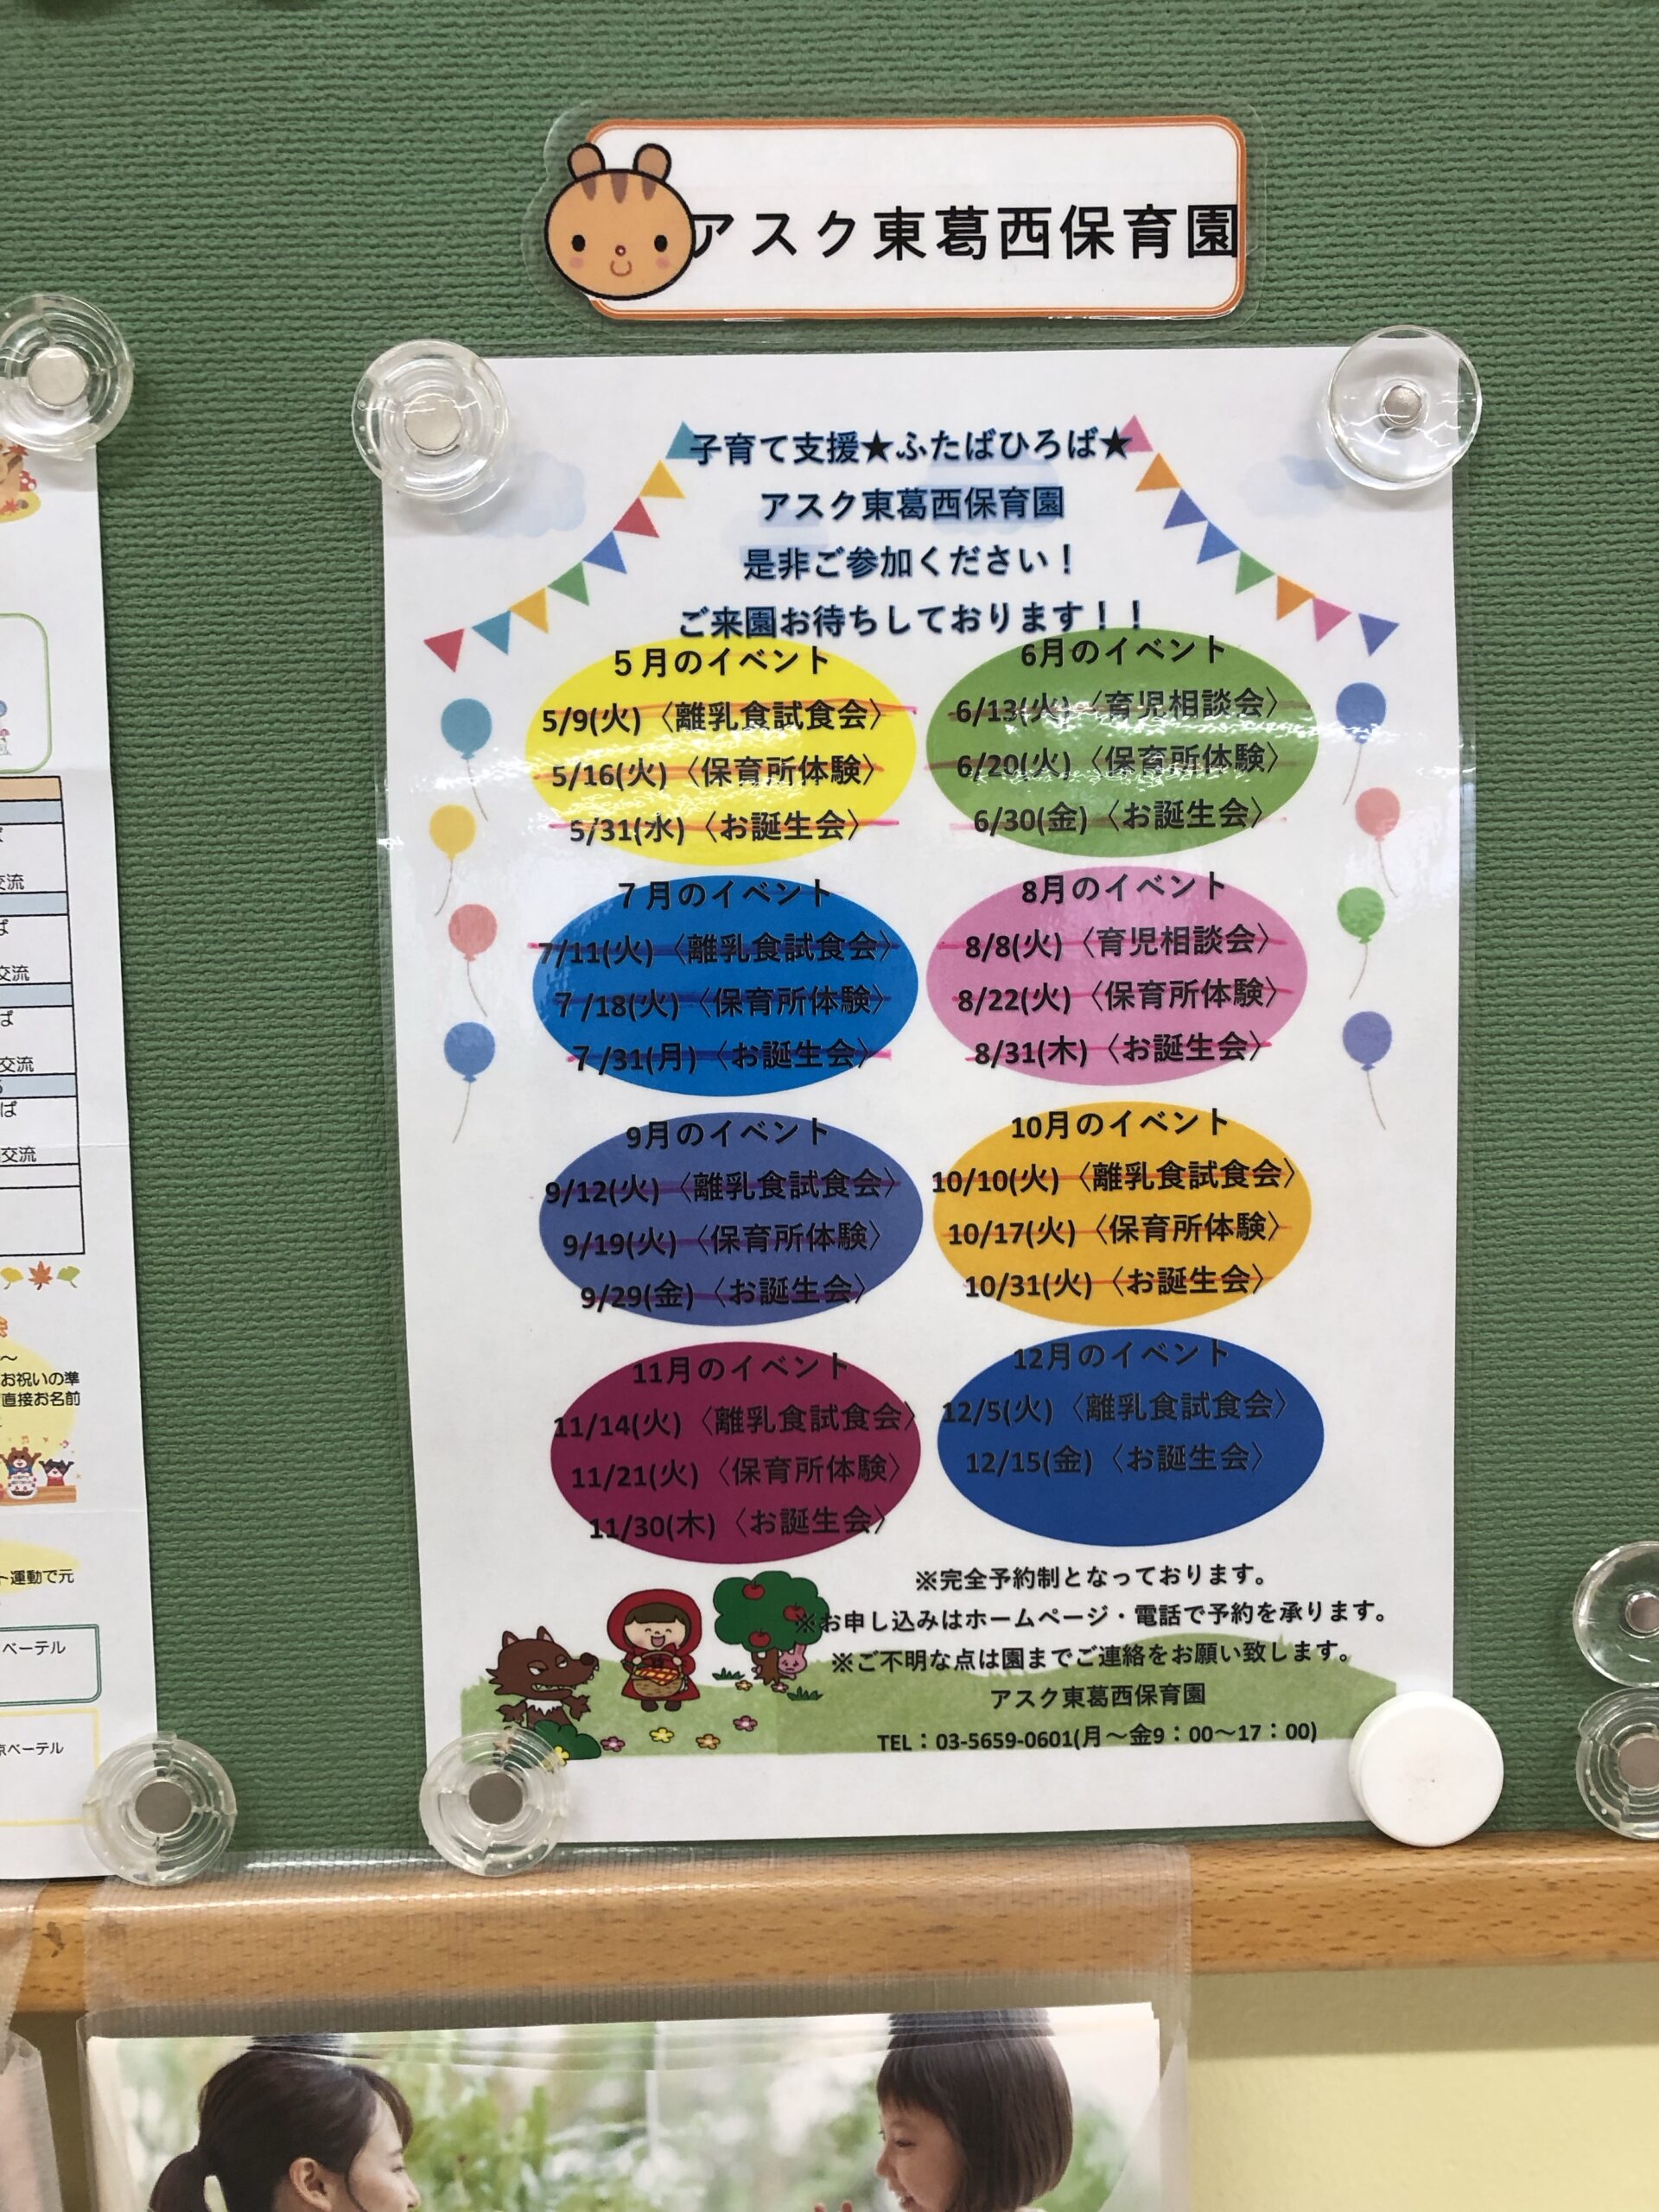 アスク東葛西保育園
子育て支援★ふたばひろば★
アスク東葛西保育園
是非ご参加ください！
ご来園お待ちしております！！
５月のイベント
5/9(火)〈離乳食試食会〉
5/16(火)〈保育所体験〉
5/31(水)〈お誕生会〉
6月のイベント
6/13(火)〈育児相談会〉
6/20(火)〈保育所体験〉
6/30(金)〈お誕生会〉
７月のイベント
7/11(火)〈離乳食試食会〉
７/18(火)〈保育所体験〉
７/31(月)〈お誕生会〉
8月のイベント
8/8(火)〈育児相談会〉
8/22(火)〈保育所体験〉
8/31(木)〈お誕生会〉
9月のイベント
9/12(火)〈離乳食試食会〉
9/19(火)〈保育所体験〉
9/29(金)〈お誕生会〉
10月のイベント
10/10(火)〈離乳食試食会〉
10/17(火)〈保育所体験〉
10/31(火)〈お誕生会〉
11月のイベント
11/14(火)〈離乳食試食会〉
11/21(火)〈保育所体験〉
11/30(木)〈お誕生会〉
12月のイベント
12/5(火)〈離乳食試食会〉
12/15(金)〈お誕生会〉
※完全予約制となっております。
※お申し込みはホームページ・電話で予約を承ります。
※ご不明な点は園までご連絡をお願い致します。
アスク東葛西保育園
TEL：03-5659-0601(月～金9：00～17：00)
交流
ば
交流
ば
交流
ば
交流
～
お祝いの準
直接お名前
ト運動で元
ベーテル
京ベーテル